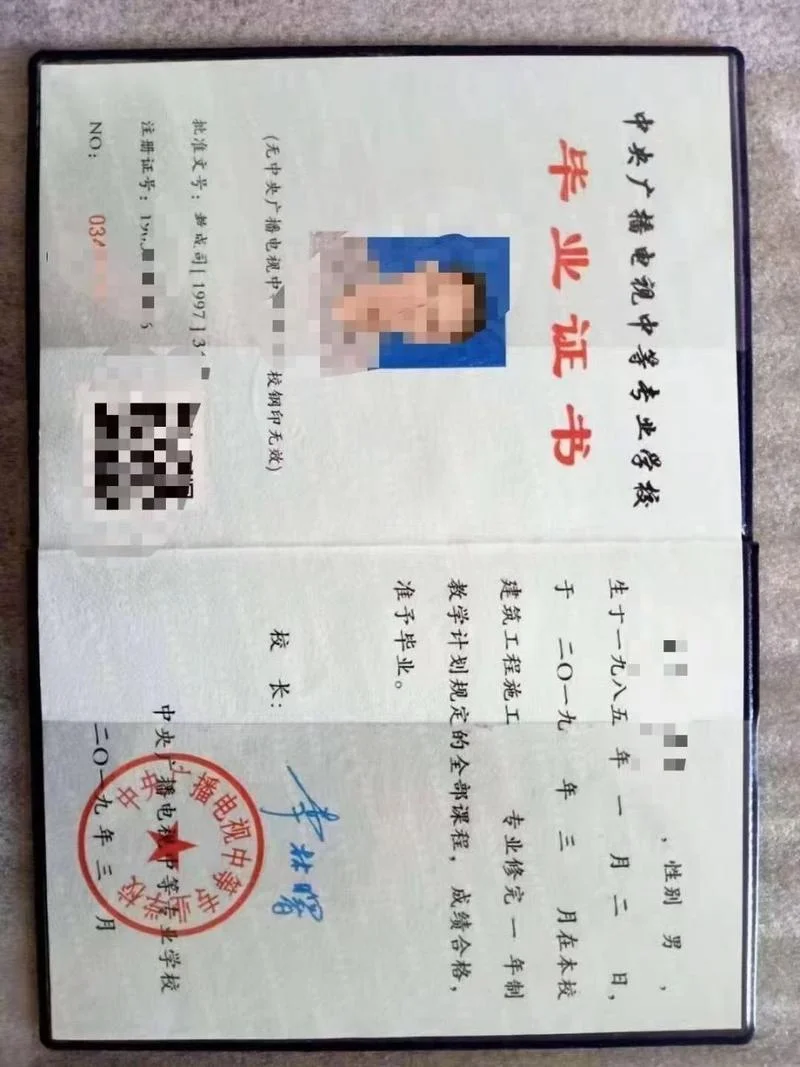 中央广播电视中等专业学校
毕业证书
(无中央广播电视中 校钢印无效)
批准文号：教成司[1997]3
注册证号：
NO： 034
，性别 男 ，
生于一九八五 年 一 月 二 日，
于 二〇一九 年 三 月在本校
建筑工程施工 专业修完 一 年制
教学计划规定的全部课程，成绩合格，
准予毕业。
校 长：
李林曙
中央广播电视中等专业学校
中央广播电视中等专业学校
二〇一九年 三 月